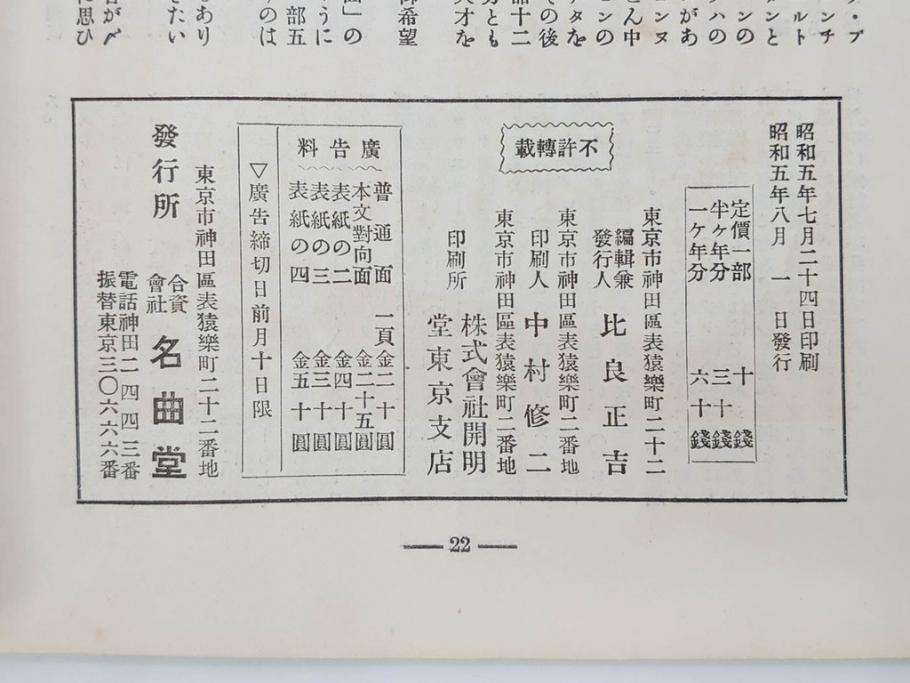 昭和五年七月二十四日印刷
昭和五年八月 一 日發行
定價一部 十 錢
半ヶ年分 三十錢
一ヶ年分 六十錢
不許轉載
東京市神田區表猿樂町二十二
編輯兼
發行人
比良正吉
東京市神田區表猿樂町二番地
印刷人 中村修二
東京市神田區表猿樂町二番地
印刷所
株式會社開明
堂東京支店
廣告料
普通面 一頁金二十圓
本文對向面 金二十五圓
表紙の二 金四十圓
表紙の三 金三十圓
表紙の四 金五十圓
▽廣告締切日前月十日限
東京市神田區表猿樂町二十二番地
發行所
合資
會社
名曲堂
電話神田二四四三番
振替東京三〇六六六番
22